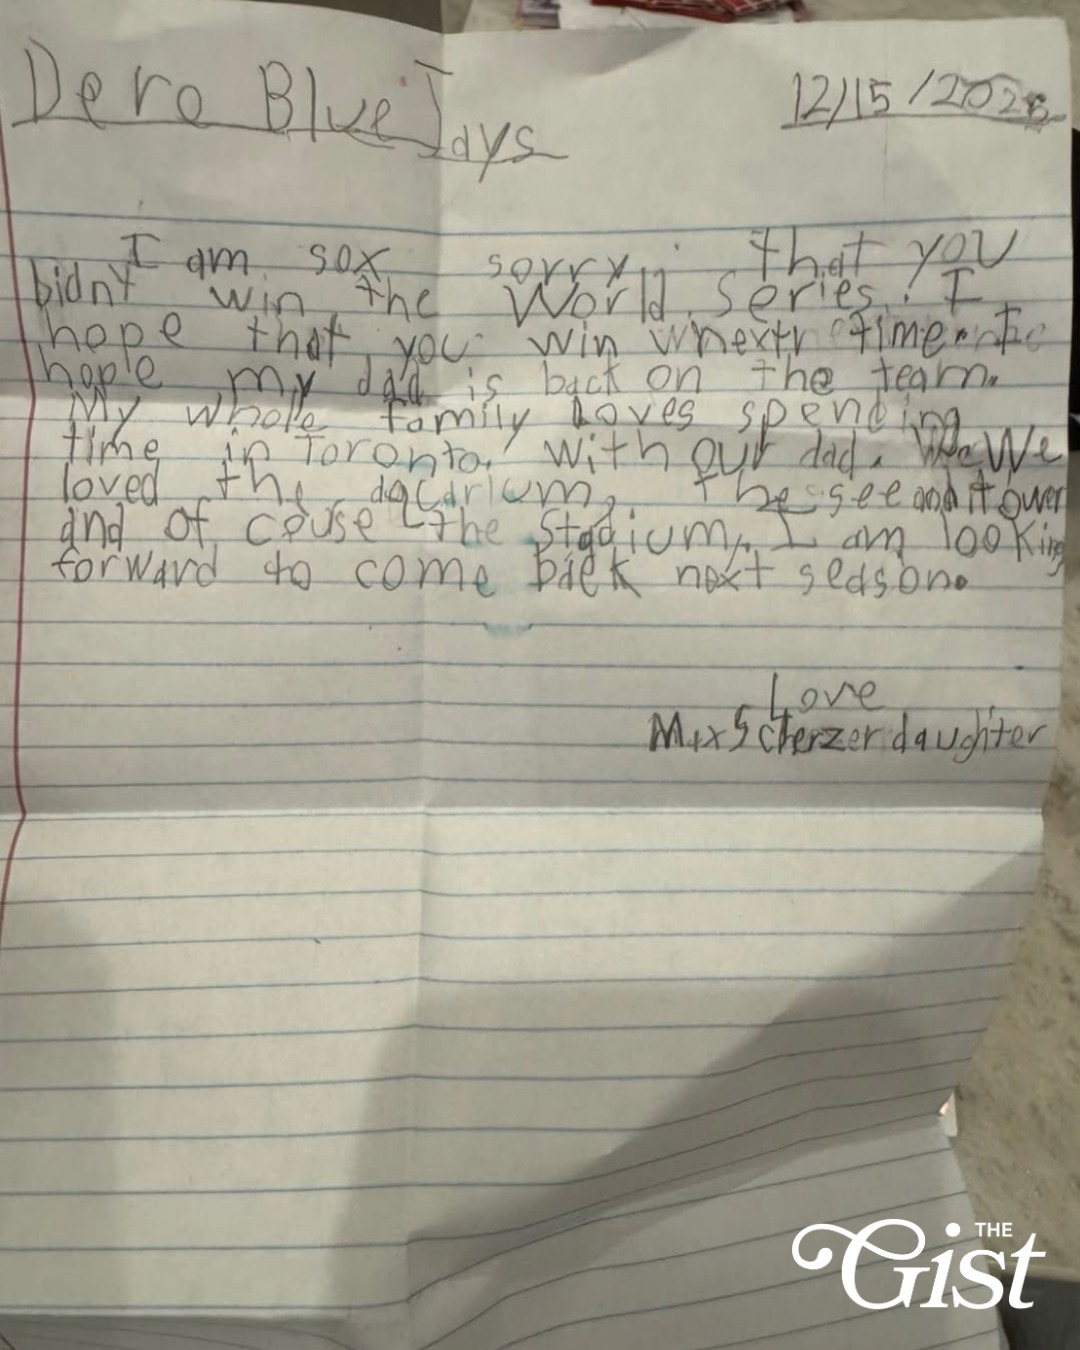 Dero Blue Jays
12/15/2025
I am sox sorry that you
bidnt win the World series. I
hope that you win whextr time. Ie
hople my dad is back on the team.
My whole family Loves spending
time in Toronto. with our dad. We We
loved the aqcarium, the see and it ower
and of couse the stadium. I am looking
forward to come back next season.
Love
Max Scherzer daughter
THE
Gist